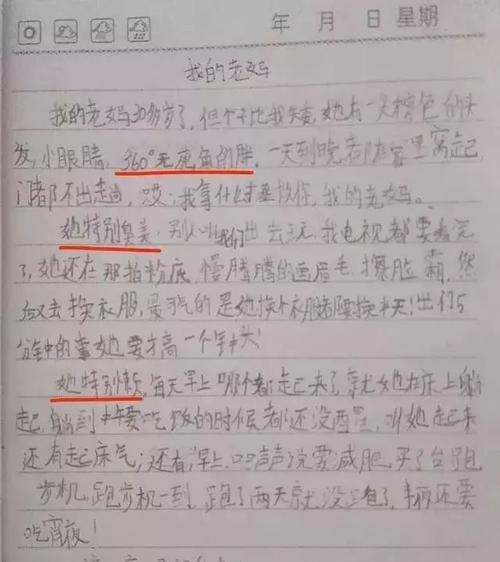 年 月 日 星期
我的老妈
我的老妈30多岁了，但个子比我矮，她有一头棕色的头
发，小眼睛，360°无死角的胖，一天到晚都在家里窝起，
门都不出走尚，哎：我拿什么拯救你，我的老妈。
她特别臭美，别人叫我们出去玩，我电视都要看完
了，她还在那拍粉底，慢腾腾的画眉毛，擦脸霜，然
后又去换衣服，最汽的是她换个衣服都要换半天！出门5
分钟的事她要搞一个钟头！
她特别懒，每天早上哪个都起来了，就她在床上躺
起，躺到中午要吃饭的时候都还没醒，叫她起来
还有起床气；还有，早上口口声声说要减肥，买了台跑
步机，跑步机一到，跑了两天就没跑了，半夜还要
吃宵夜！